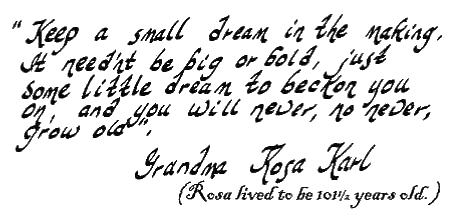 "Keep a small dream in the making.
It need'nt be big or bold, just
some little dream to beckon you
on, and you will never, no never,
grow old".
Grandma Rosa Karl
(Rosa lived to be 101½ years old.)